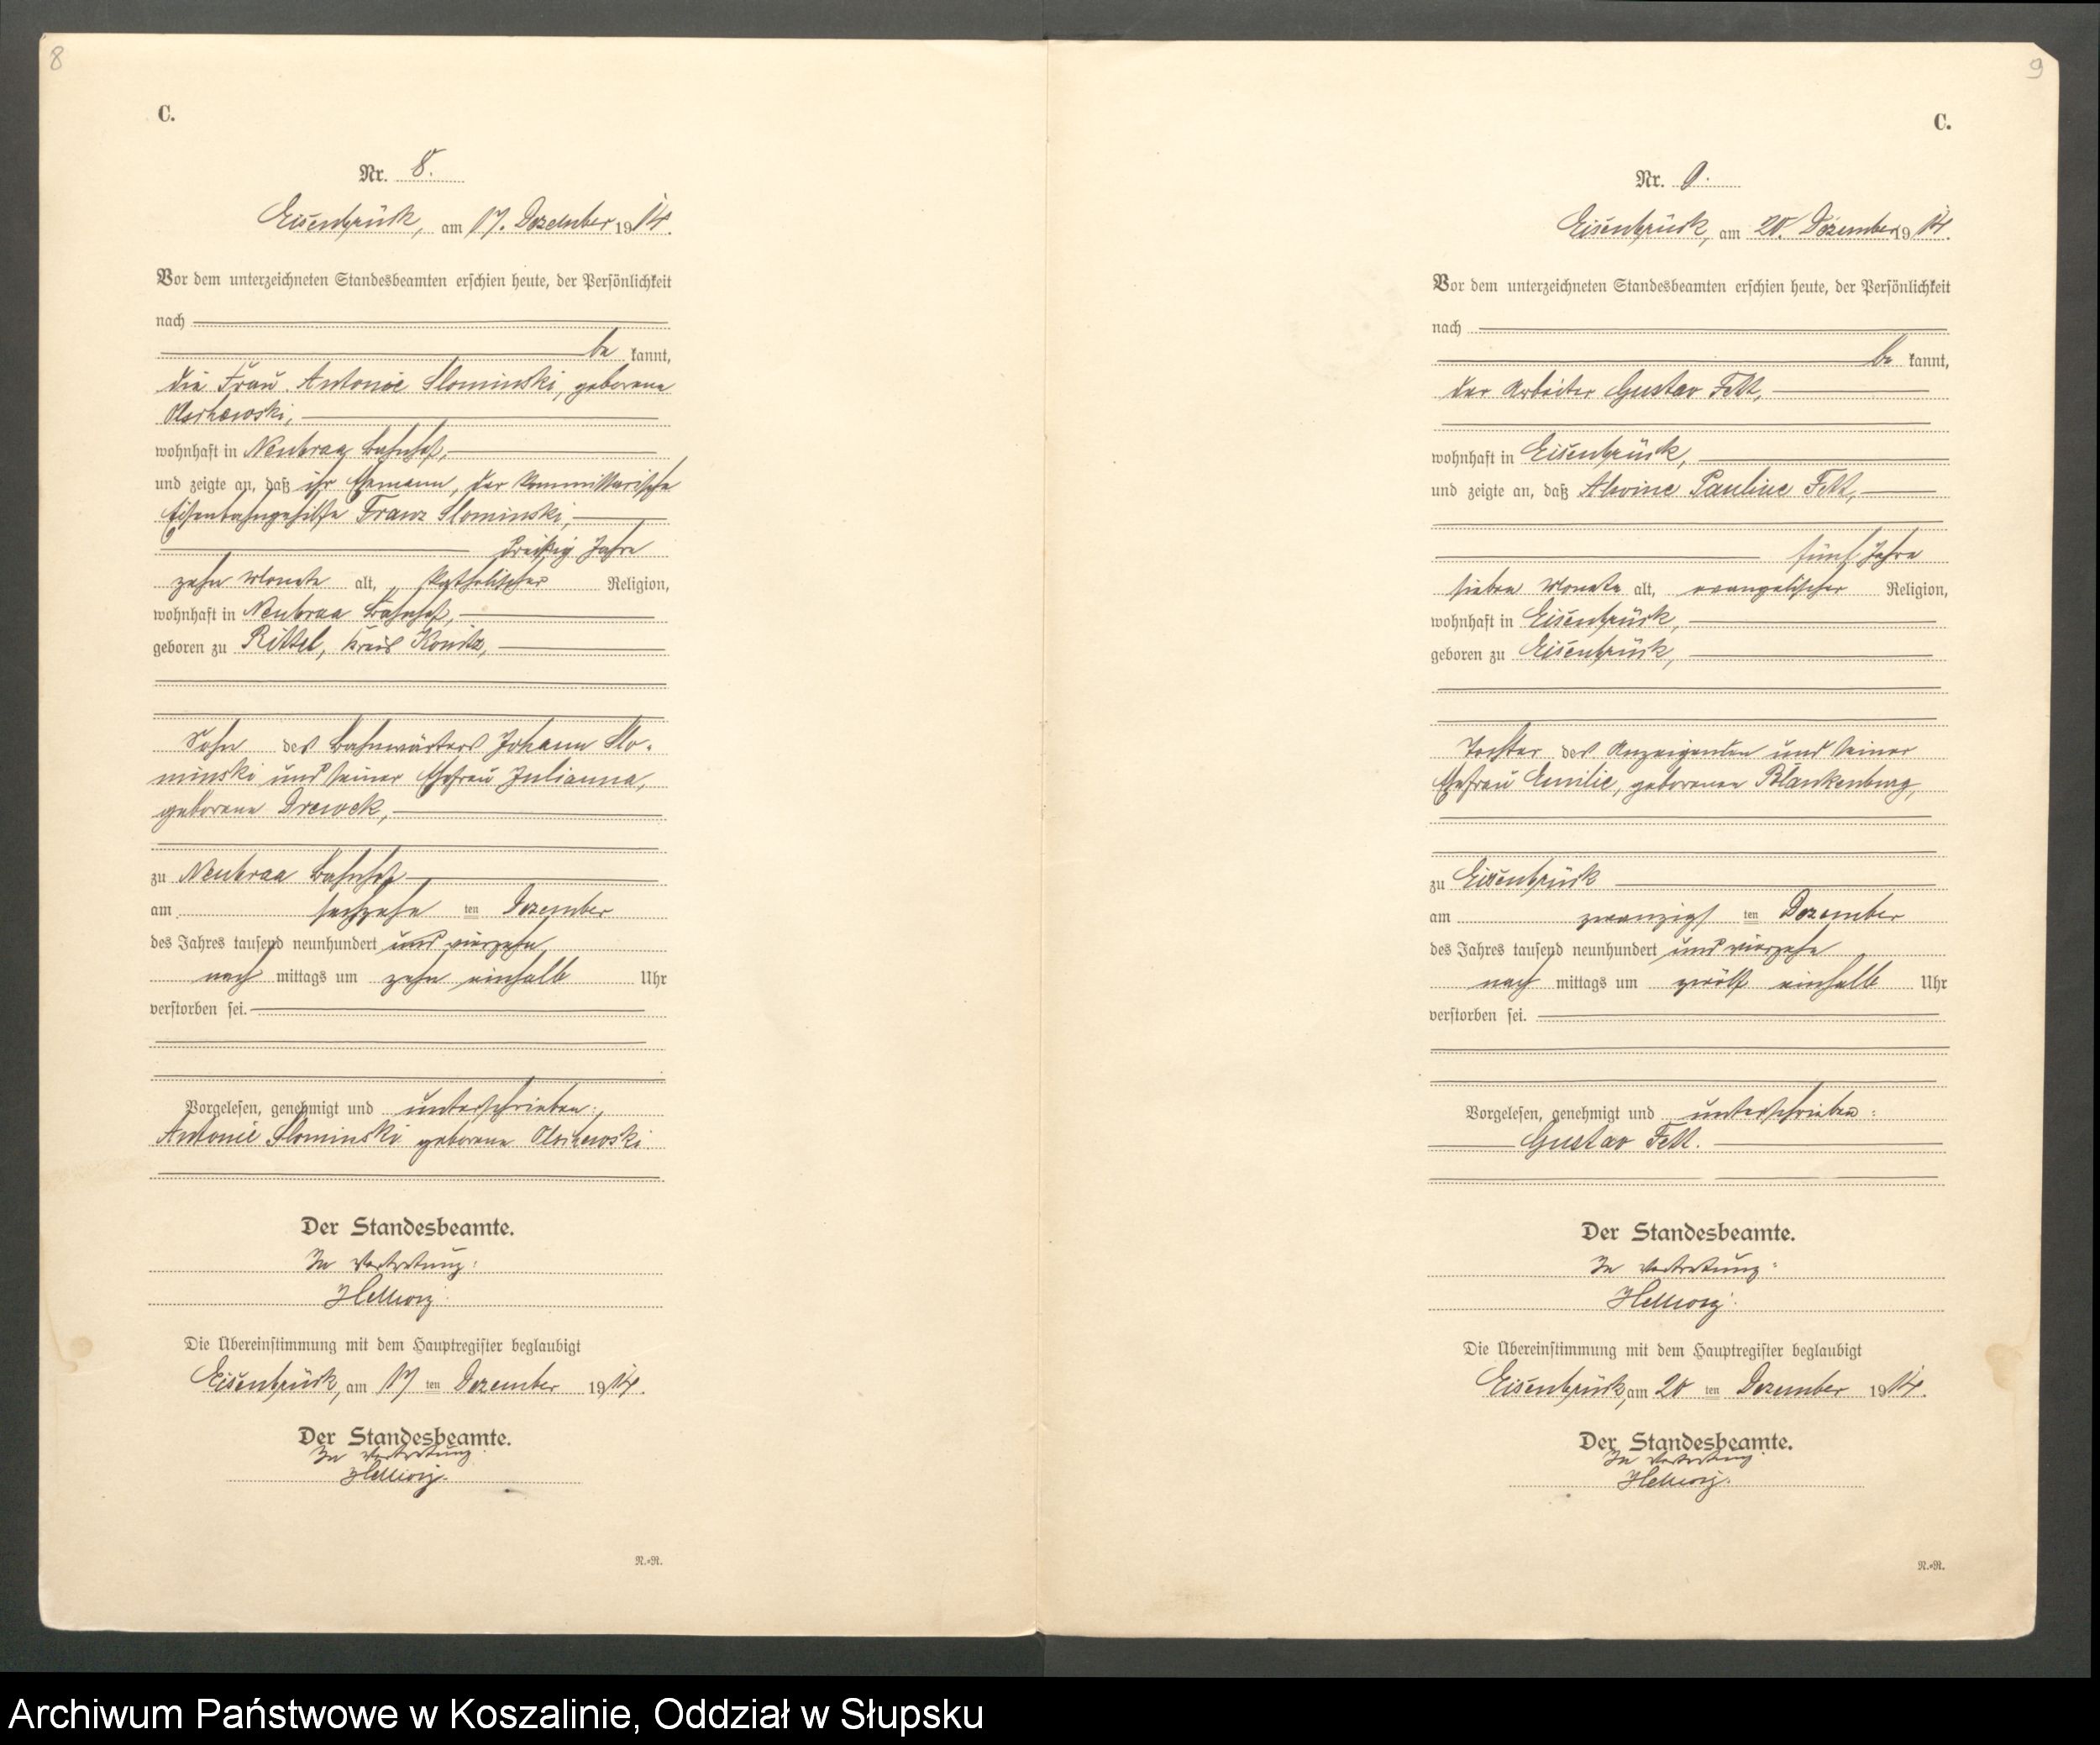 8
C.
Nr. 8.
Eisenbrück, am 17. Dezember 1914.
Vor dem unterzeichneten Standesbeamten erschien heute, der Persönlichkeit
nach
be kannt,
die Frau Antonie Slominski, geborene
Olschewski,
wohnhaft in Neubraa Bahnhof,
und zeigte an, daß ihr Ehemann, der kommissarische
Eisenbahngehilfe Franz Slominski,
dreißig Jahre
zehn Monate alt, katholischer Religion,
wohnhaft in Neubraa Bahnhof,
geboren zu Rittel, Kreis Konitz,
Sohn des Bahnwärters Johann Slo-
minski und seiner Ehefrau Julianna,
geborene Drewek,
zu Neubraa Bahnhof
am sechzehn ten Dezember
des Jahres tausend neunhundert und vierzehn
nach mittags um zehn einhalb Uhr
verstorben sei.
Vorgelesen, genehmigt und unterschrieben:
Antonie Slominski geborene
Der Standesbeamte.
In Vertretung:
Hellwig.
Die Übereinstimmung mit dem Hauptregister beglaubigt
Eisenbrück, am 17 ten Dezember 1914.
Der Standesbeamte.
In Vertretung
Hellwig.
N.-R.
9
C.
Nr. 9.
Eisenbrück, am 20. Dezember 1914.
Vor dem unterzeichneten Standesbeamten erschien heute, der Persönlichkeit
nach
be kannt,
der Arbeiter Gustav Fett,
wohnhaft in Eisenbrück,
und zeigte an, daß Alwine Pauline Fett,
fünf Jahre
sieben Monate alt, evangelischer Religion,
wohnhaft in Eisenbrück,
geboren zu Eisenbrück,
Tochter des Anzeigenden und seiner
Ehefrau Emilie, geborenen Blankenburg,
zu Eisenbrück
am zwanzigs ten Dezember
des Jahres tausend neunhundert und vierzehn
nach mittags um zwölf einhalb Uhr
verstorben sei.
Vorgelesen, genehmigt und unterschrieben:
Gustav Fett.
Der Standesbeamte.
In Vertretung:
Hellwig.
Die Übereinstimmung mit dem Hauptregister beglaubigt
Eisenbrück, am 20 ten Dezember 1914.
Der Standesbeamte.
In Vertretung
Hellwig.
N.-R.
Archiwum Państwowe w Koszalinie, Oddział w Słupsku